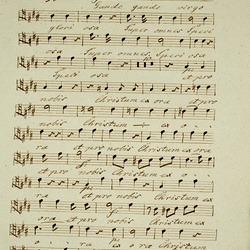 Gaude gaude virgo
gloriosa Super omnes Speci
osa Super omnes Speciosa
Speciosa et pro
nobis christum ora et pro
nobis Christum
ra et pro nobis Christum ora
et pro nobis Christum
ra et pro nobis Christum
ora et pro nobis Christum ex
o ra ora Christum